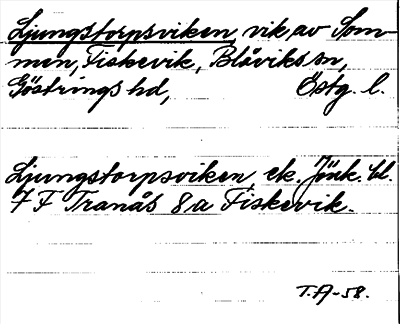 Ljungstorpsviken, vik av Som-
men, Fiskevik, Blåviks sn,
Göstrings hd, Östg. l.
Ljungstorpsviken, ek. Jönk. bl.
7 F Tranås 8a Fiskevik.
T.A-58.